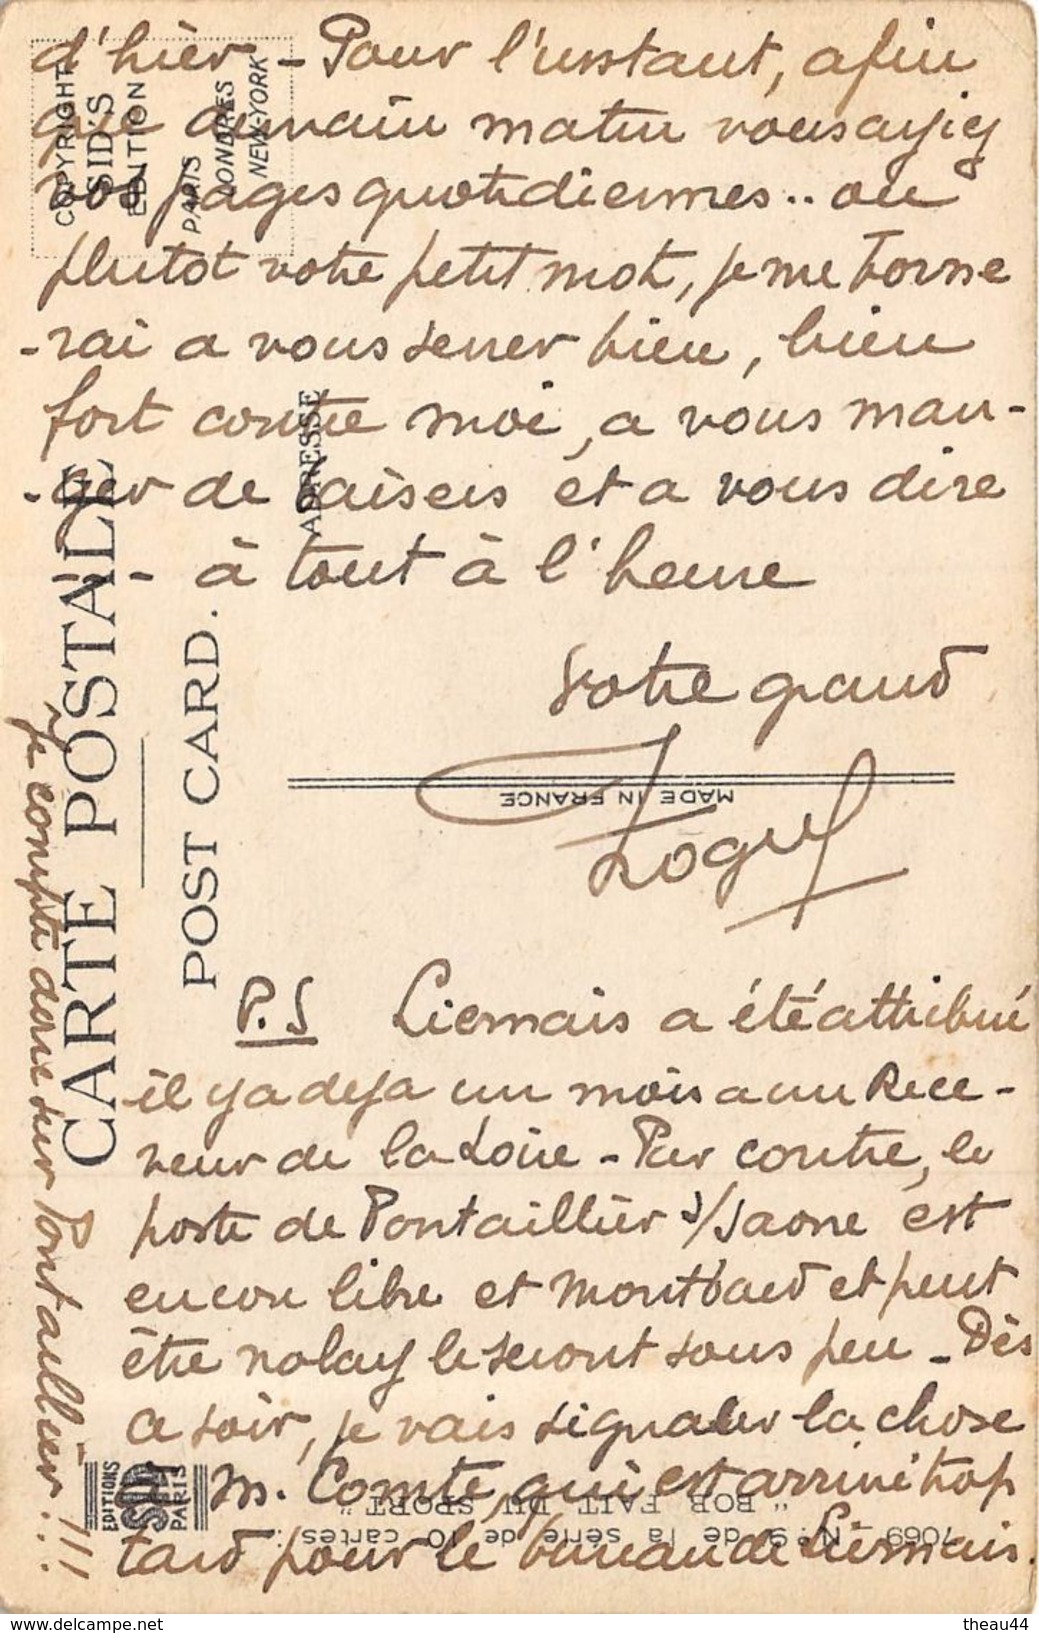 d'hièr - Pour l'instant, afin
que demain matin vous ayiez
vos pages quotidiennes.. ou
plutot votre petit mot, je me borne
-rai a vous serrer bien, bien
fort contre moi, a vous man-
-ger de baisers et a vous dire
- à tout à l'heure
Votre grand
P.S Liernais a été attribué
il y a deja un mois a un Rece-
veur de la Loire - Par contre, le
poste de Pontaillièr s/Saone est
encore libre et Montbard et peut
être nolay le seront sous peu - Dès
ce soir, je vais signaler la chose
à M. Comte, qui est arrivé trop
tard pour le bureau de Liernais.
Je compte donc sur Pontaillier!!!
COPYRIGHT
SID'S
EDITION
PARIS
LONDRES
NEW-YORK
CARTE POSTALE
POST CARD.
ADRESSE
MADE IN FRANCE
EDITIONS
SID
PARIS
7069 - N° 9 de la série de 10 cartes :
" BOB FAIT DU SPORT "
www.delcampe.net
theau44